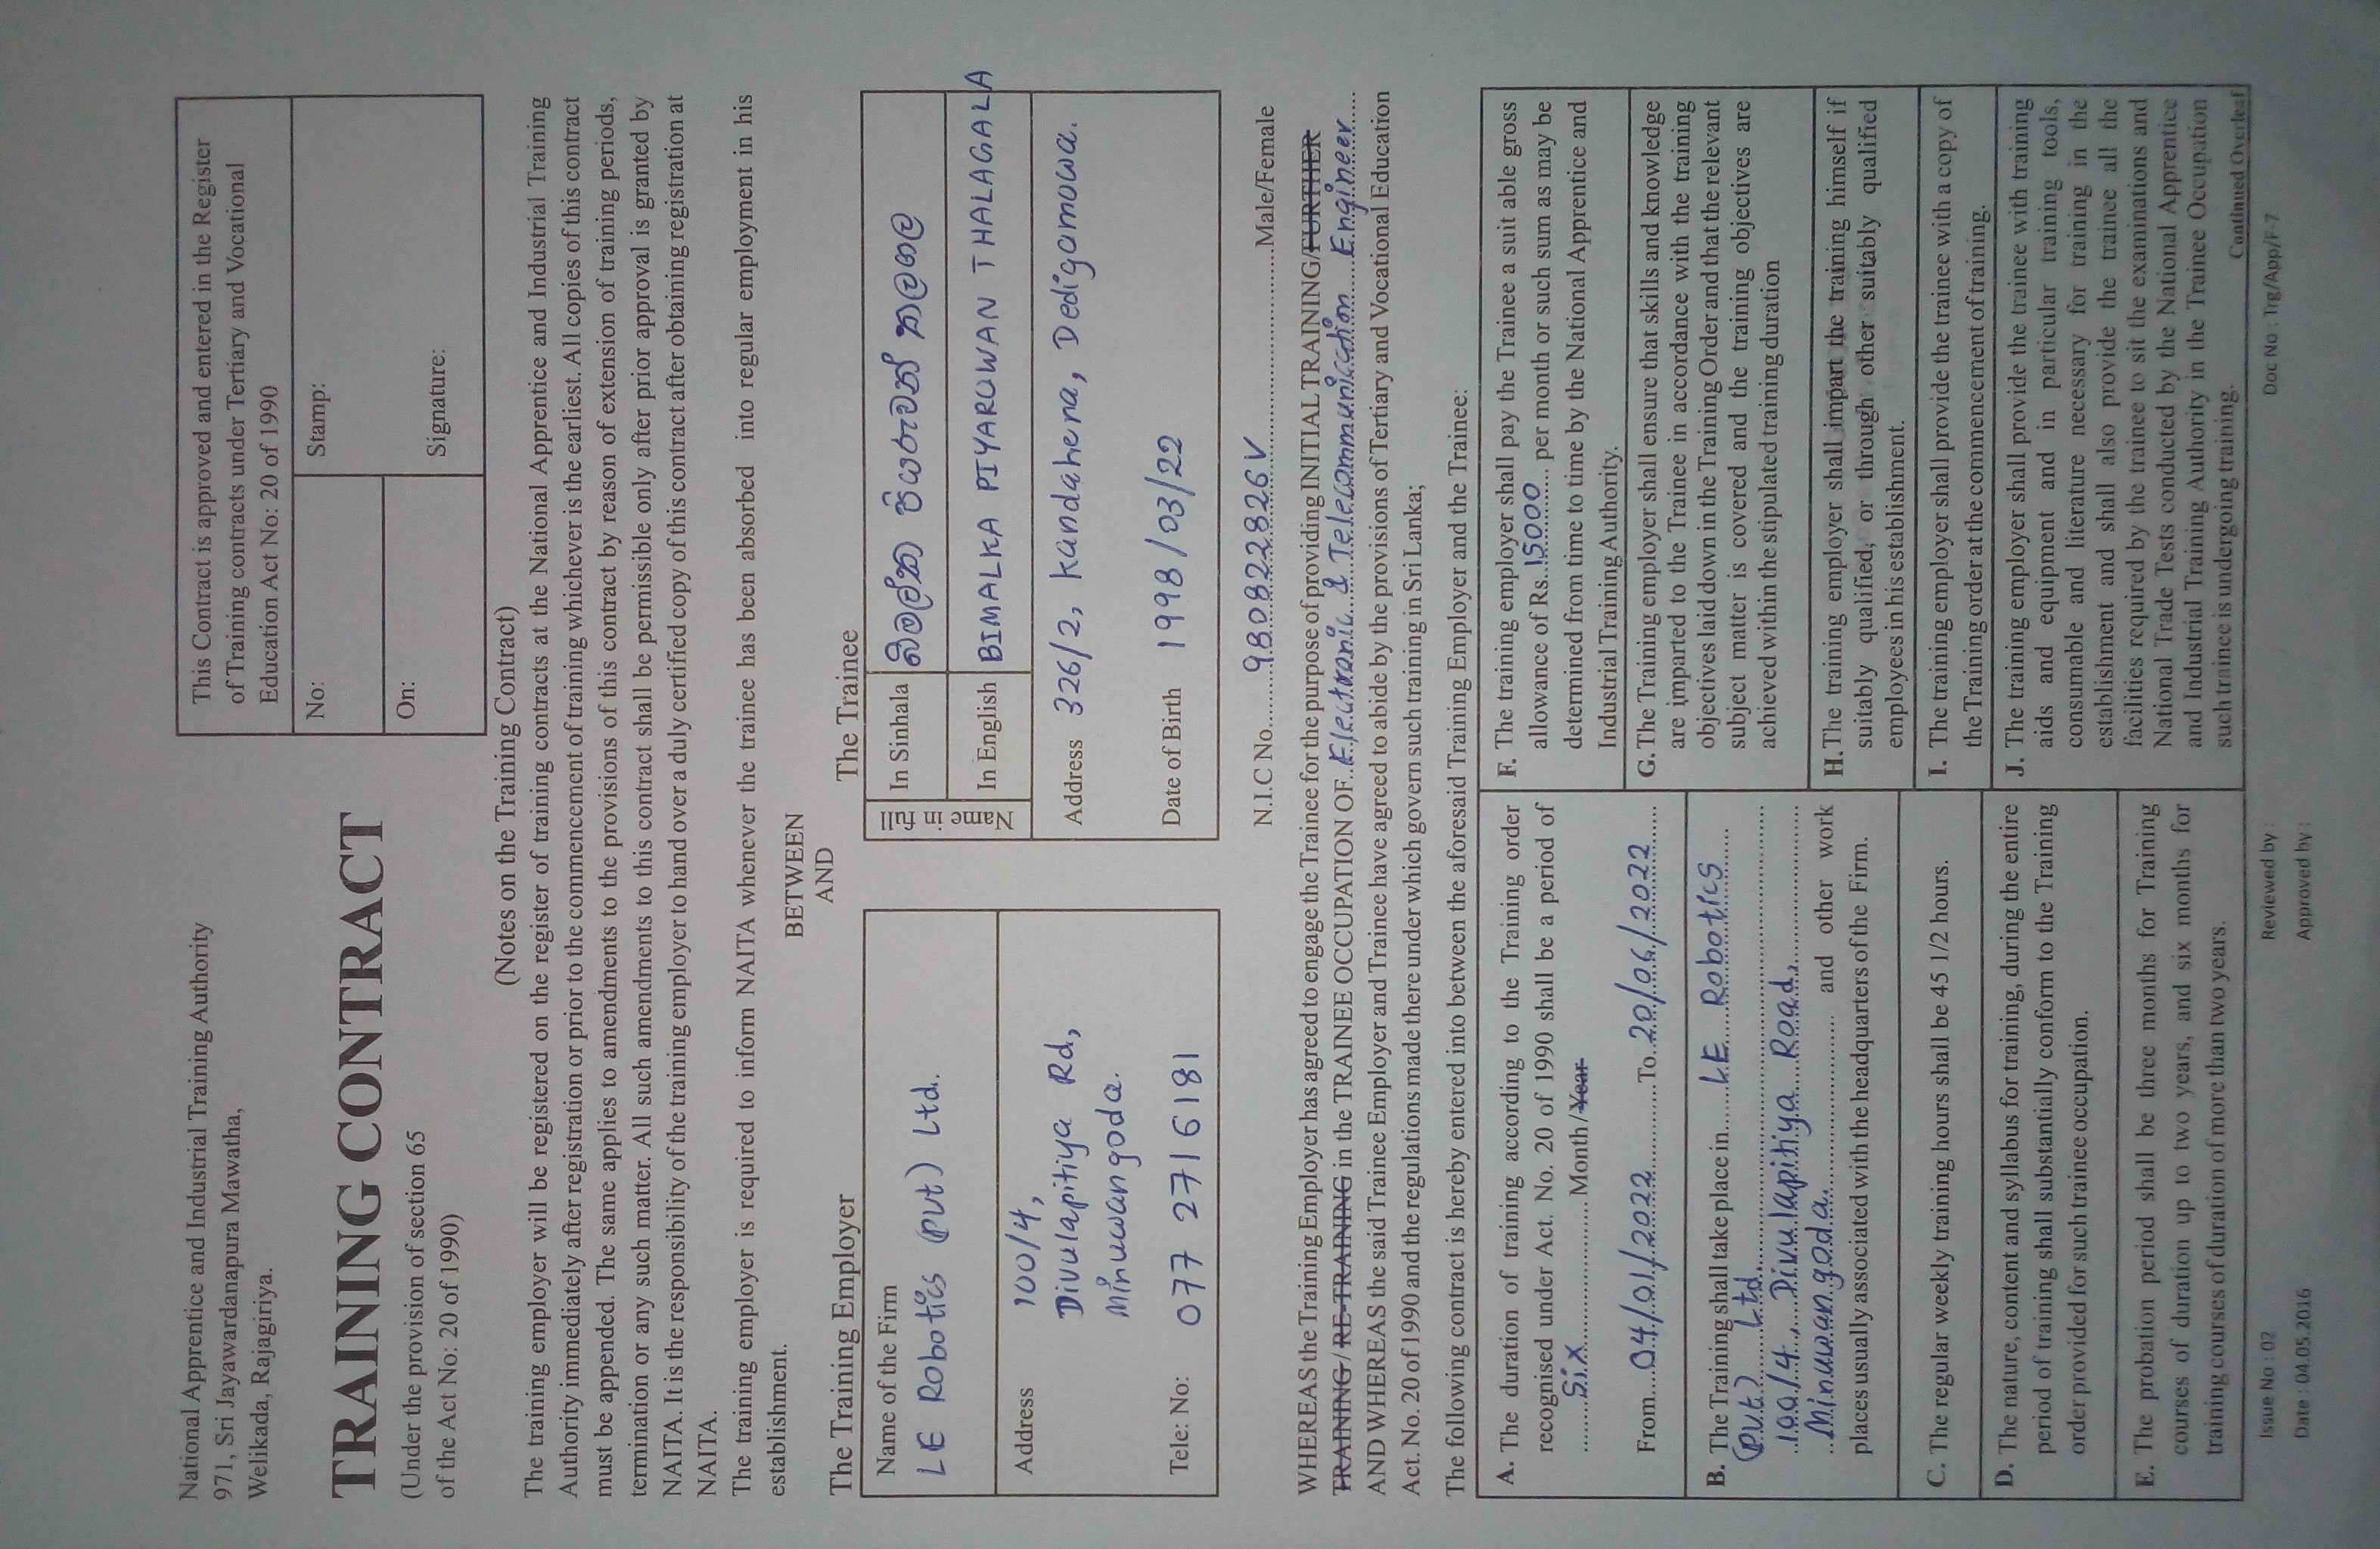 National Apprentice and Industrial Training Authority
971, Sri Jayawardanapura Mawatha,
Welikada, Rajagiriya.
This Contract is approved and entered in the Register
of Training contracts under Tertiary and Vocational
Education Act No: 20 of 1990
No:
Stamp:
On:
Signature:
TRAINING CONTRACT
(Under the provision of section 65
of the Act No: 20 of 1990)
(Notes on the Training Contract)
The training employer will be registered on the register of training contracts at the National Apprentice and Industrial Training
Authority immediately after registration or prior to the commencement of training whichever is the earliest. All copies of this contract
must be appended. The same applies to amendments to the provisions of this contract by reason of extension of training periods,
termination or any such matter. All such amendments to this contract shall be permissible only after prior approval is granted by
NAITA. It is the responsibility of the training employer to hand over a duly certified copy of this contract after obtaining registration at
NAITA.
The training employer is required to inform NAITA whenever the trainee has been absorbed into regular employment in his
establishment.
BETWEEN
AND
The Training Employer
Name of the Firm
LE Robotics (Pvt) Ltd.
Address 100/4,
Divulapitiya Rd,
Minuwangoda.
Tele: No: 077 2716181
The Trainee
Name in full
In Sinhala බිමල්ක පියරුවන් තලගල
In English BIMALKA PIYARUWAN THALAGALA
Address 326/2, Kandahena, Dedigamowa.
Date of Birth 1998/03/22
N.I.C No.........980822826V..........Male/Female
WHEREAS the Training Employer has agreed to engage the Trainee for the purpose of providing INITIAL TRAINING/FURTHER
TRAINING/ RE-TRAINING in the TRAINEE OCCUPATION OF..Electronic & Telecommunication Engineer....
AND WHEREAS the said Trainee Employer and Trainee have agreed to abide by the provisions of Tertiary and Vocational Education
Act. No. 20 of 1990 and the regulations made there under which govern such training in Sri Lanka;
The following contract is hereby entered into between the aforesaid Training Employer and the Trainee:
A. The duration of training according to the Training order
recognised under Act. No. 20 of 1990 shall be a period of
........Six...................... Month/Year
From....04/01/2022.............To..20/06/2022......
B. The Training shall take place in.......LE Robotics
(Pvt) Ltd.
100/4, Divulapitiya Road,
Minuwangoda. ........................ and other work
places usually associated with the headquarters of the Firm.
C. The regular weekly training hours shall be 45 1/2 hours.
D. The nature, content and syllabus for training, during the entire
period of training shall substantially conform to the Training
order provided for such trainee occupation.
E. The probation period shall be three months for Training
courses of duration up to two years, and six months for
training courses of duration of more than two years.
F. The training employer shall pay the Trainee a suit able gross
allowance of Rs..15000.. per month or such sum as may be
determined from time to time by the National Apprentice and
Industrial Training Authority.
G. The Training employer shall ensure that skills and knowledge
are imparted to the Trainee in accordance with the training
objectives laid down in the Training Order and that the relevant
subject matter is covered and the training objectives are
achieved within the stipulated training duration
H. The training employer shall impart the training himself if
suitably qualified, or through other suitably qualified
employees in his establishment.
I. The training employer shall provide the trainee with a copy of
the Training order at the commencement of training.
J. The training employer shall provide the trainee with training
aids and equipment and in particular training tools,
consumable and literature necessary for training in the
establishment and shall also provide the trainee all the
facilities required by the trainee to sit the examinations and
National Trade Tests conducted by the National Apprentice
and Industrial Training Authority in the Trainee Occupation
such trainee is undergoing training.
Continued Overleaf
Issue No : 02
Reviewed by :
Doc No : Trg/App/F-7
Date : 04.05.2016
Approved by :